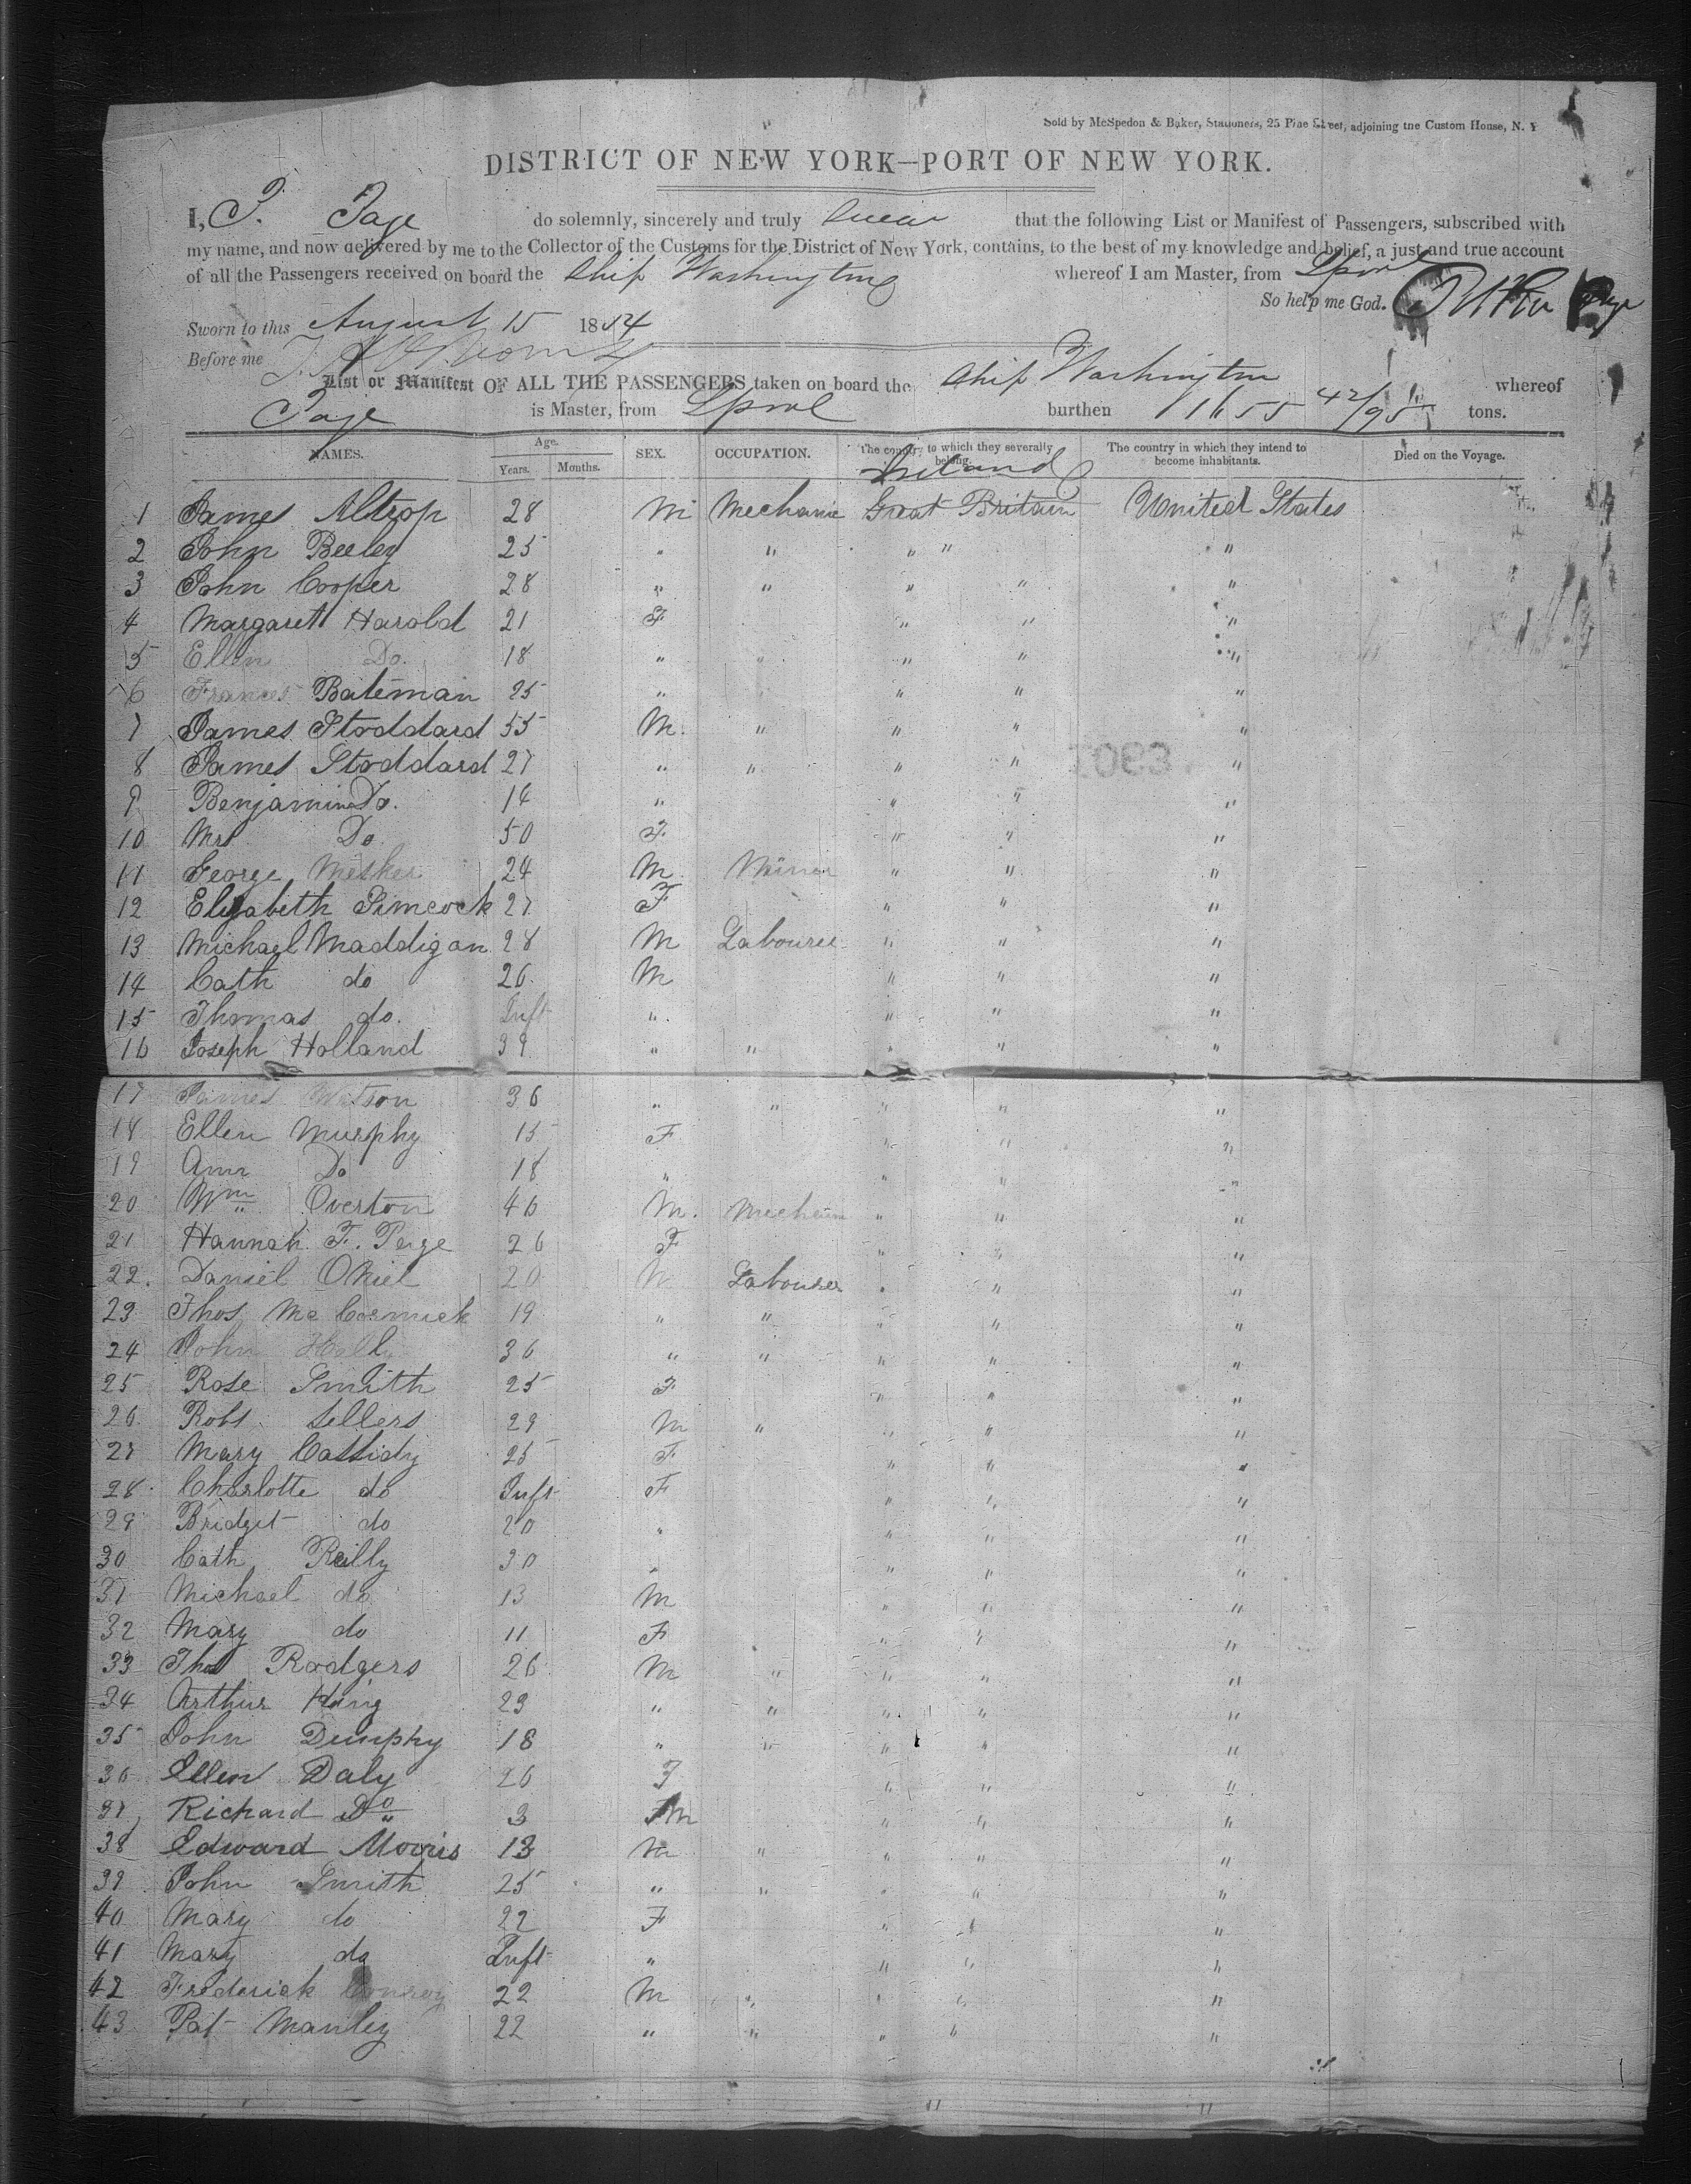 Sold by McSpedon & Baker, Stationers, 25 Pine Street, adjoining the Custom House, N. Y
DISTRICT OF NEW YORK—PORT OF NEW YORK.
I, P. Page do solemnly, sincerely and truly swear that the following List or Manifest of Passengers, subscribed with
my name, and now delivered by me to the Collector of the Customs for the District of New York, contains, to the best of my knowledge and belief, a just and true account
of all the Passengers received on board the Ship Washington whereof I am Master, from Lpool
So help me God. Page
Sworn to this August 15 1854
Before me
List or Manifest OF ALL THE PASSENGERS taken on board the Ship Washington whereof
Page is Master, from Lpool burthen 1655 42/95 tons.
NAMES. Age. Years. Months. SEX. OCCUPATION. The country to which they severally belong. The country in which they intend to become inhabitants. Died on the Voyage.
Ireland
1 James Altrop 28 M Mechanic Great Britain United States
2 John Beeley 25 " " " " "
3 John Cooper 28 " " " " "
4 Margaret Harold 21 F " " "
5 Ellen Do. 18 " " " " "
6 Frances Bateman 25 " " " "
7 James Stoddard 55 M. " " " "
8 James Stoddard 27 " " " " "
1093
9 Benjamin Do. 14 " " " "
10 Mrs Do 50 F. " " "
11 George 24 M. Miner " " "
12 Elizabeth Simcock 27 F " " "
13 Michael Maddigan 28 M Labourer " " "
14 Cath do 26. M " " "
15 Thomas do. Inft ". " " "
16 Joseph Holland 39 " " " " "
17 James Watson 36 " " " " "
18 Ellen Murphy 15 F " " "
19 Ann Do 18 " " " "
20 Wm Overton 46 M. Mechanic " " "
21 Hannah F. Page 26 F " " "
22. Daniel ONiel 20 M Labourer " " "
23 Thos Mc Cormick 19 " " " " "
24 John 36 " " " " "
25 Rose Smith 25 F " " "
26 Robt. Sellers 29 M " " " "
27 Mary Cassidy 25 F " " "
28. Charlotte do Inft F " " "
29 Bridget do 20 " " " "
30 Cath Reilly 30 " " " "
31 Michael do 13 M " " "
32 Mary do 11 F " " "
33 Thos Rodgers 26 M " " " "
34 Arthur King 23 " " " " "
35 John Dunphy 18 " " " " "
36 Ellen Daly 26 F " " "
37 Richard Do 3 M " " "
38 Edward Morris 13 M " " " "
39 John Smith 25 " " " " "
40 Mary do 22 F " " "
41 Mary do Inft " " " "
42 Frederick Conroy 22 M " " " "
43 Pat Manley 22 " " " " "
" "